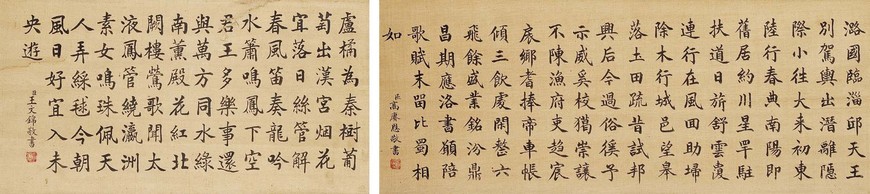 潞國臨淄邸天王
別駕輿出潛離隱
際小往大來初東
陸行春典南陽即
舊居約川星罕駐
扶道日旂舒雲覆
連行在風回助埽
除木行城邑望皋
落土田疏昔試邦
興后今過俗徯予
示威奚校獵崇讓
不陳漁府吏趨宸
扆鄉耆捧帝車帳
傾三飲處閑整六
飛餘盛業銘汾鼎
昌期應洛書願陪
歌賦末留比蜀相
如
臣高敬書
盧橘為秦樹葡
萄出漢宮烟花
宜落日絲管醉
春風笛奏龍吟
水簫鳴鳳下空
君王多樂事還
與萬方同水綠
南薰殿花紅北
闕樓鶯歌聞太
液鳳管繞瀛洲
素女鳴珠佩天
人弄綵毬今朝
風日好宜入未
央遊
臣王文錦敬書